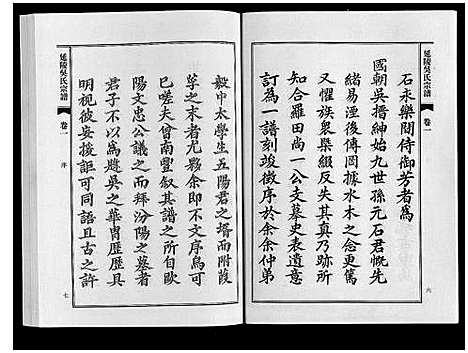 延陵吳氏宗譜
卷一
六
石永樂間侍御芳者為
國朝吳搢紳始九世孫元石君慨先
緒易湮後傳罔據水木之念更篤
又懼族衆槩級反失其真乃跡所
知合羅田尚一公支墓史表遺意
訂為一譜刻竣徵序於余余仲弟
毅中太學生五陽君之壻而附葭
莩之末者尤夥余即不文序烏可
已嗟夫曾南豐叙其譜之所自歐
陽文忠公議之而拜汾陽之墓者
君子不以為趨吳之華冑歷歷具
明視彼妄援詎可同語且古之許
延陵吳氏宗譜
卷一
序
七